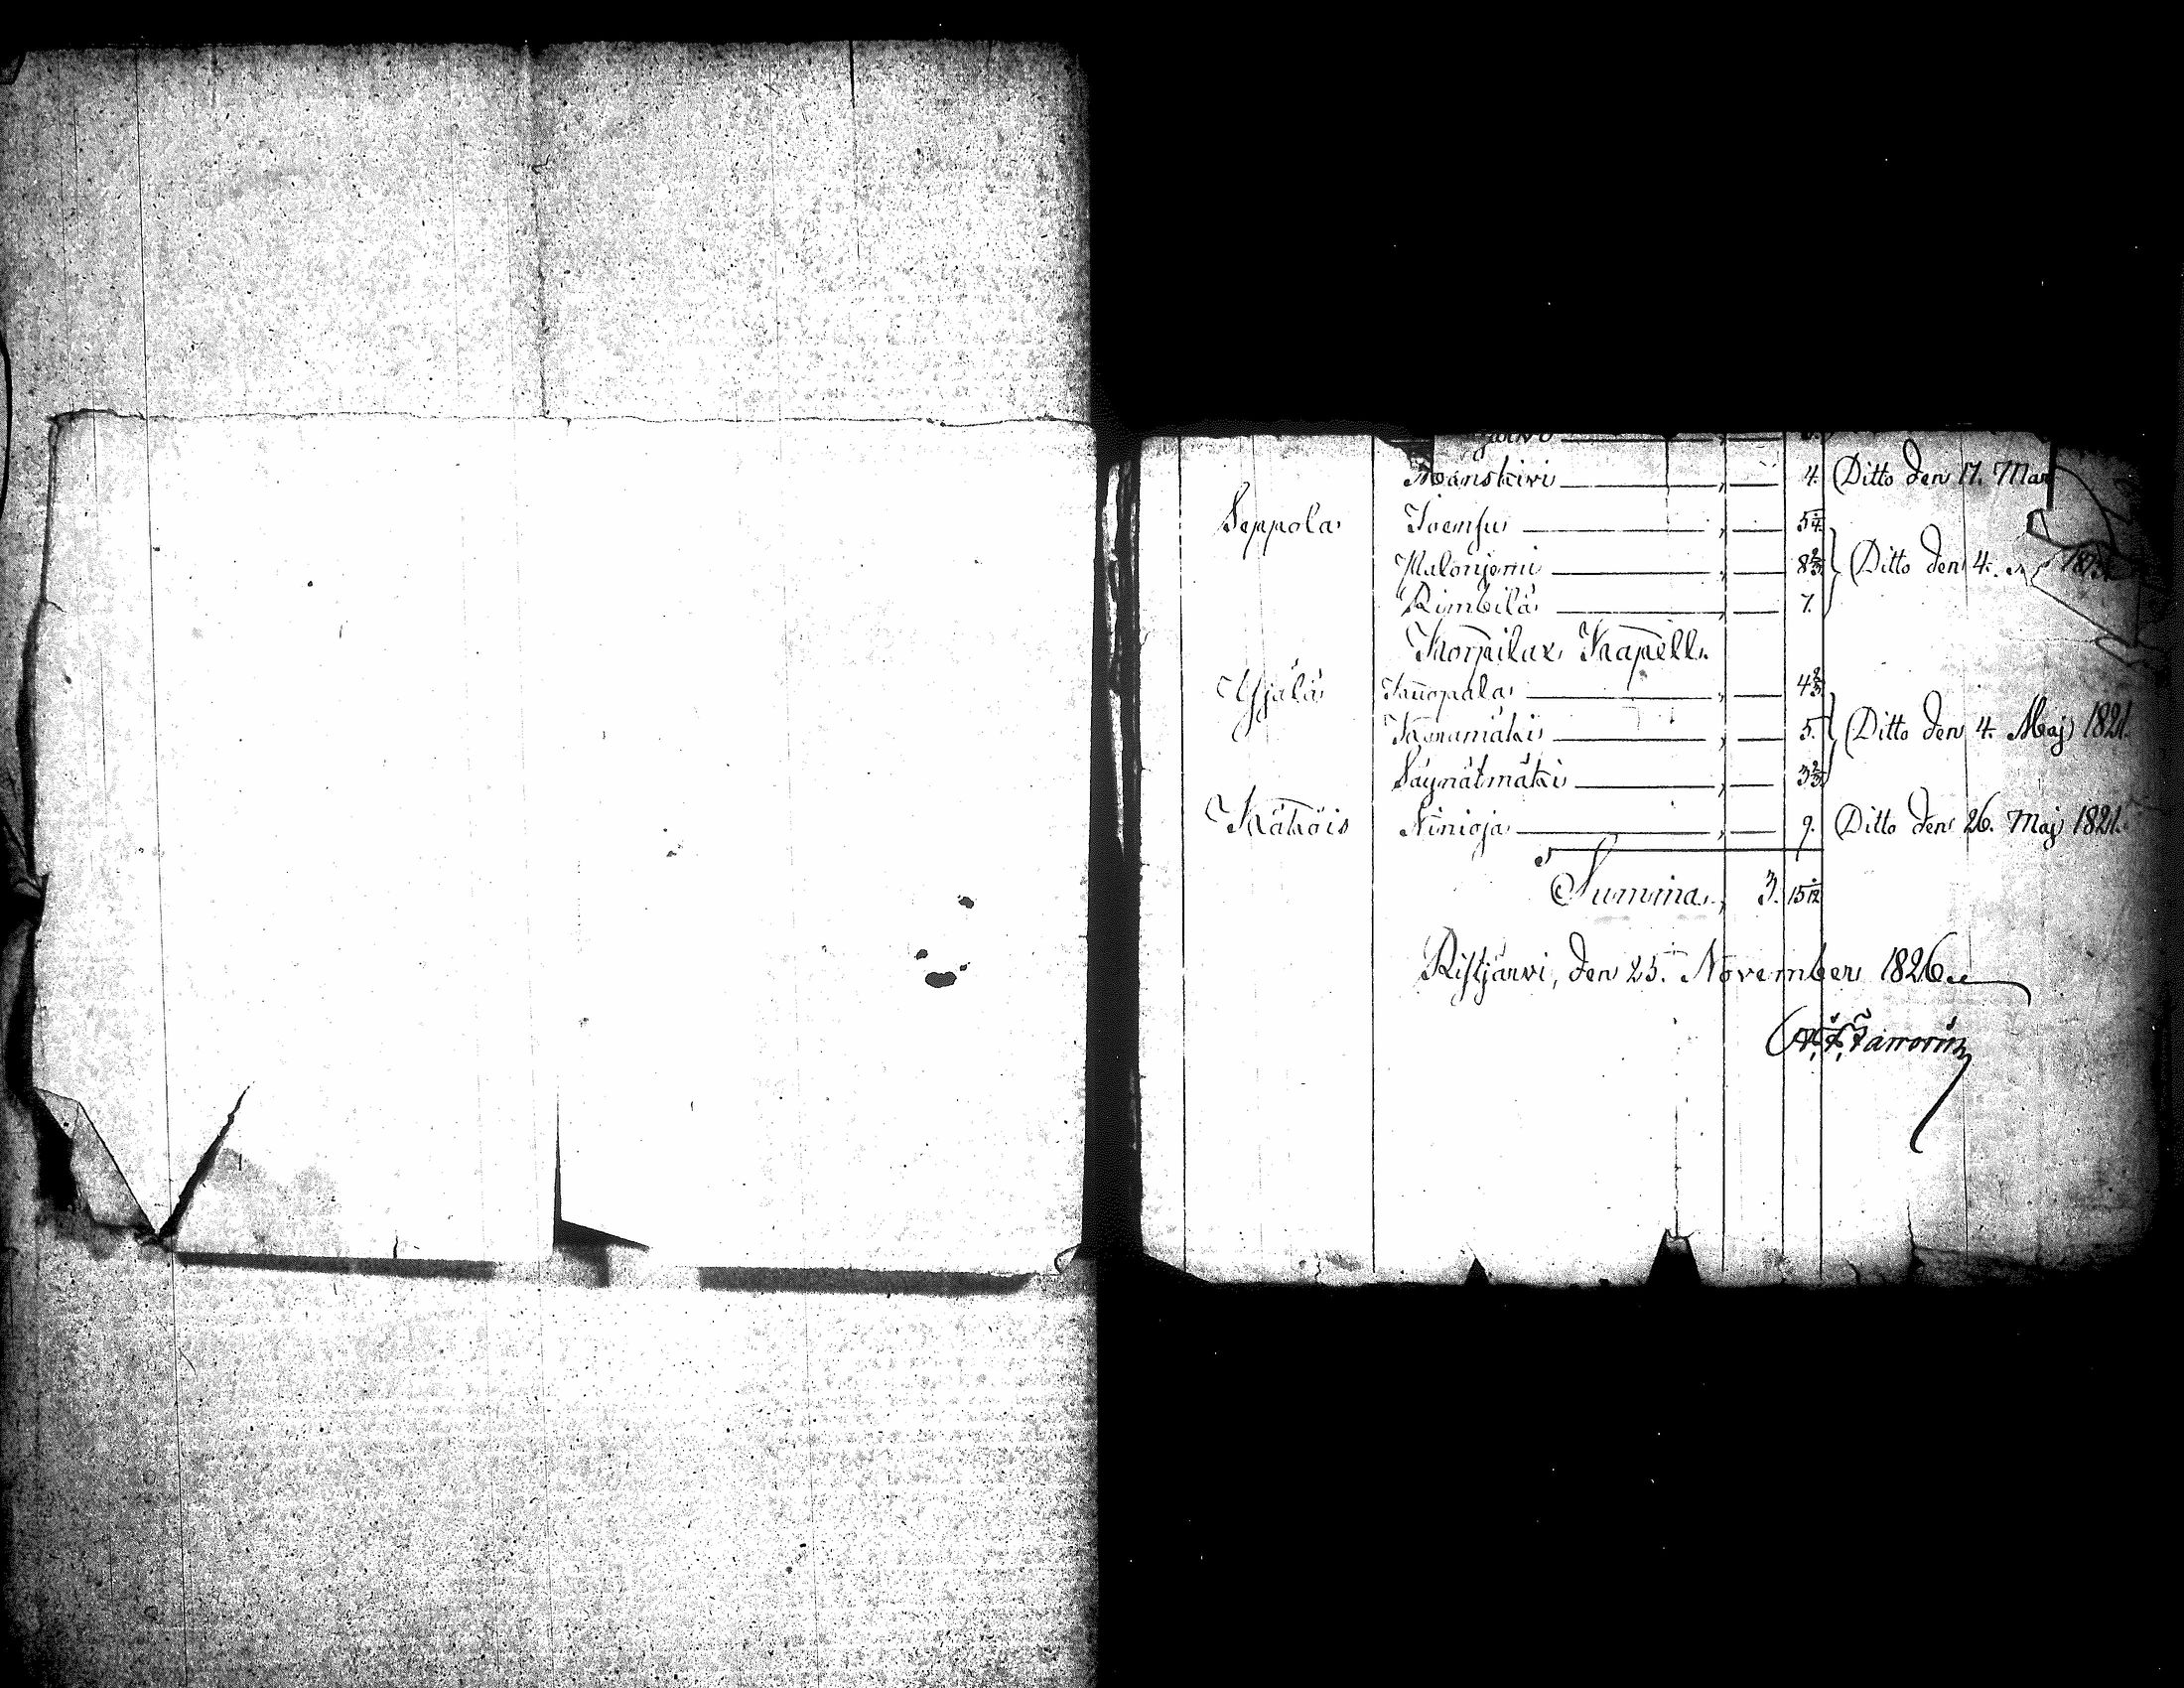 Månskivi , 4. Ditto den 17. Mar
Seppola Joensu , 5 1/4
Malonjemi , 8 2/3 Ditto den 4. 182
Rimbilä , 7.
Korpilax Kapell.
Yjälä Sauopala , 4 2/3
Kanamäki , 5. Ditto den 4. Maj 1821.
Säynätmäki , 3 2/3
Käköis Ninioja , 9. Ditto den 26. Maj 1821.
Summa , 3. 15 1/12
Ristjärwi, den 25. November 1826